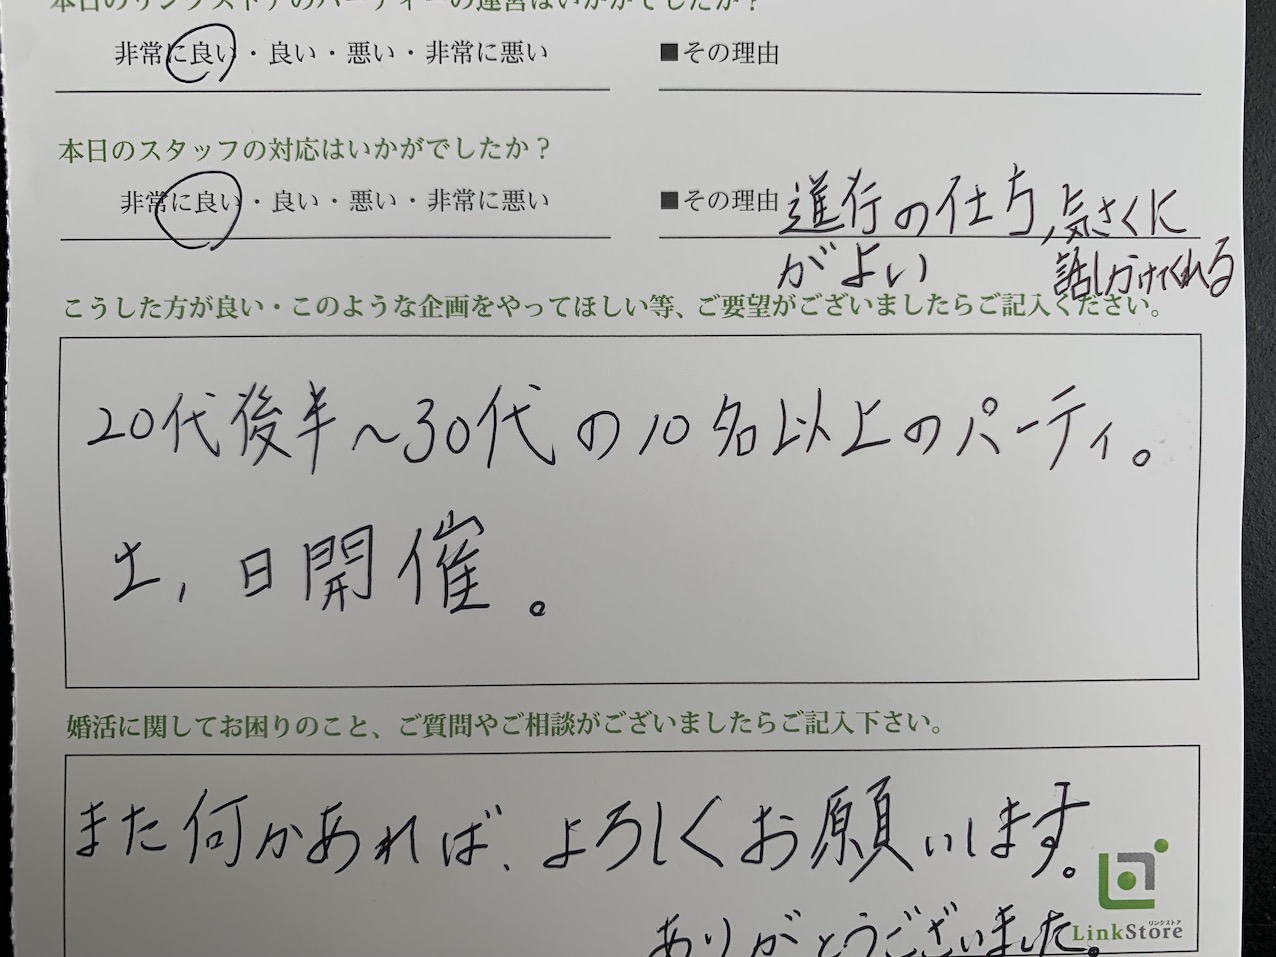 本日のリンクストアのパーティーの運営はいかがでしたか？
非常に良い・良い・悪い・非常に悪い ■その理由
本日のスタッフの対応はいかがでしたか？
非常に良い・良い・悪い・非常に悪い ■その理由 進行の仕方, 気さくに
がよい 話し分けてくれる
こうした方が良い・このような企画をやってほしい等、ご要望がございましたらご記入ください。
20代後半～30代の10名以上のパーティ。
土, 日開催。
婚活に関してお困りのこと、ご質問やご相談がございましたらご記入下さい。
また何かあれば、よろしくお願いします。
ありがとうございました。
リンクストア
LinkStore